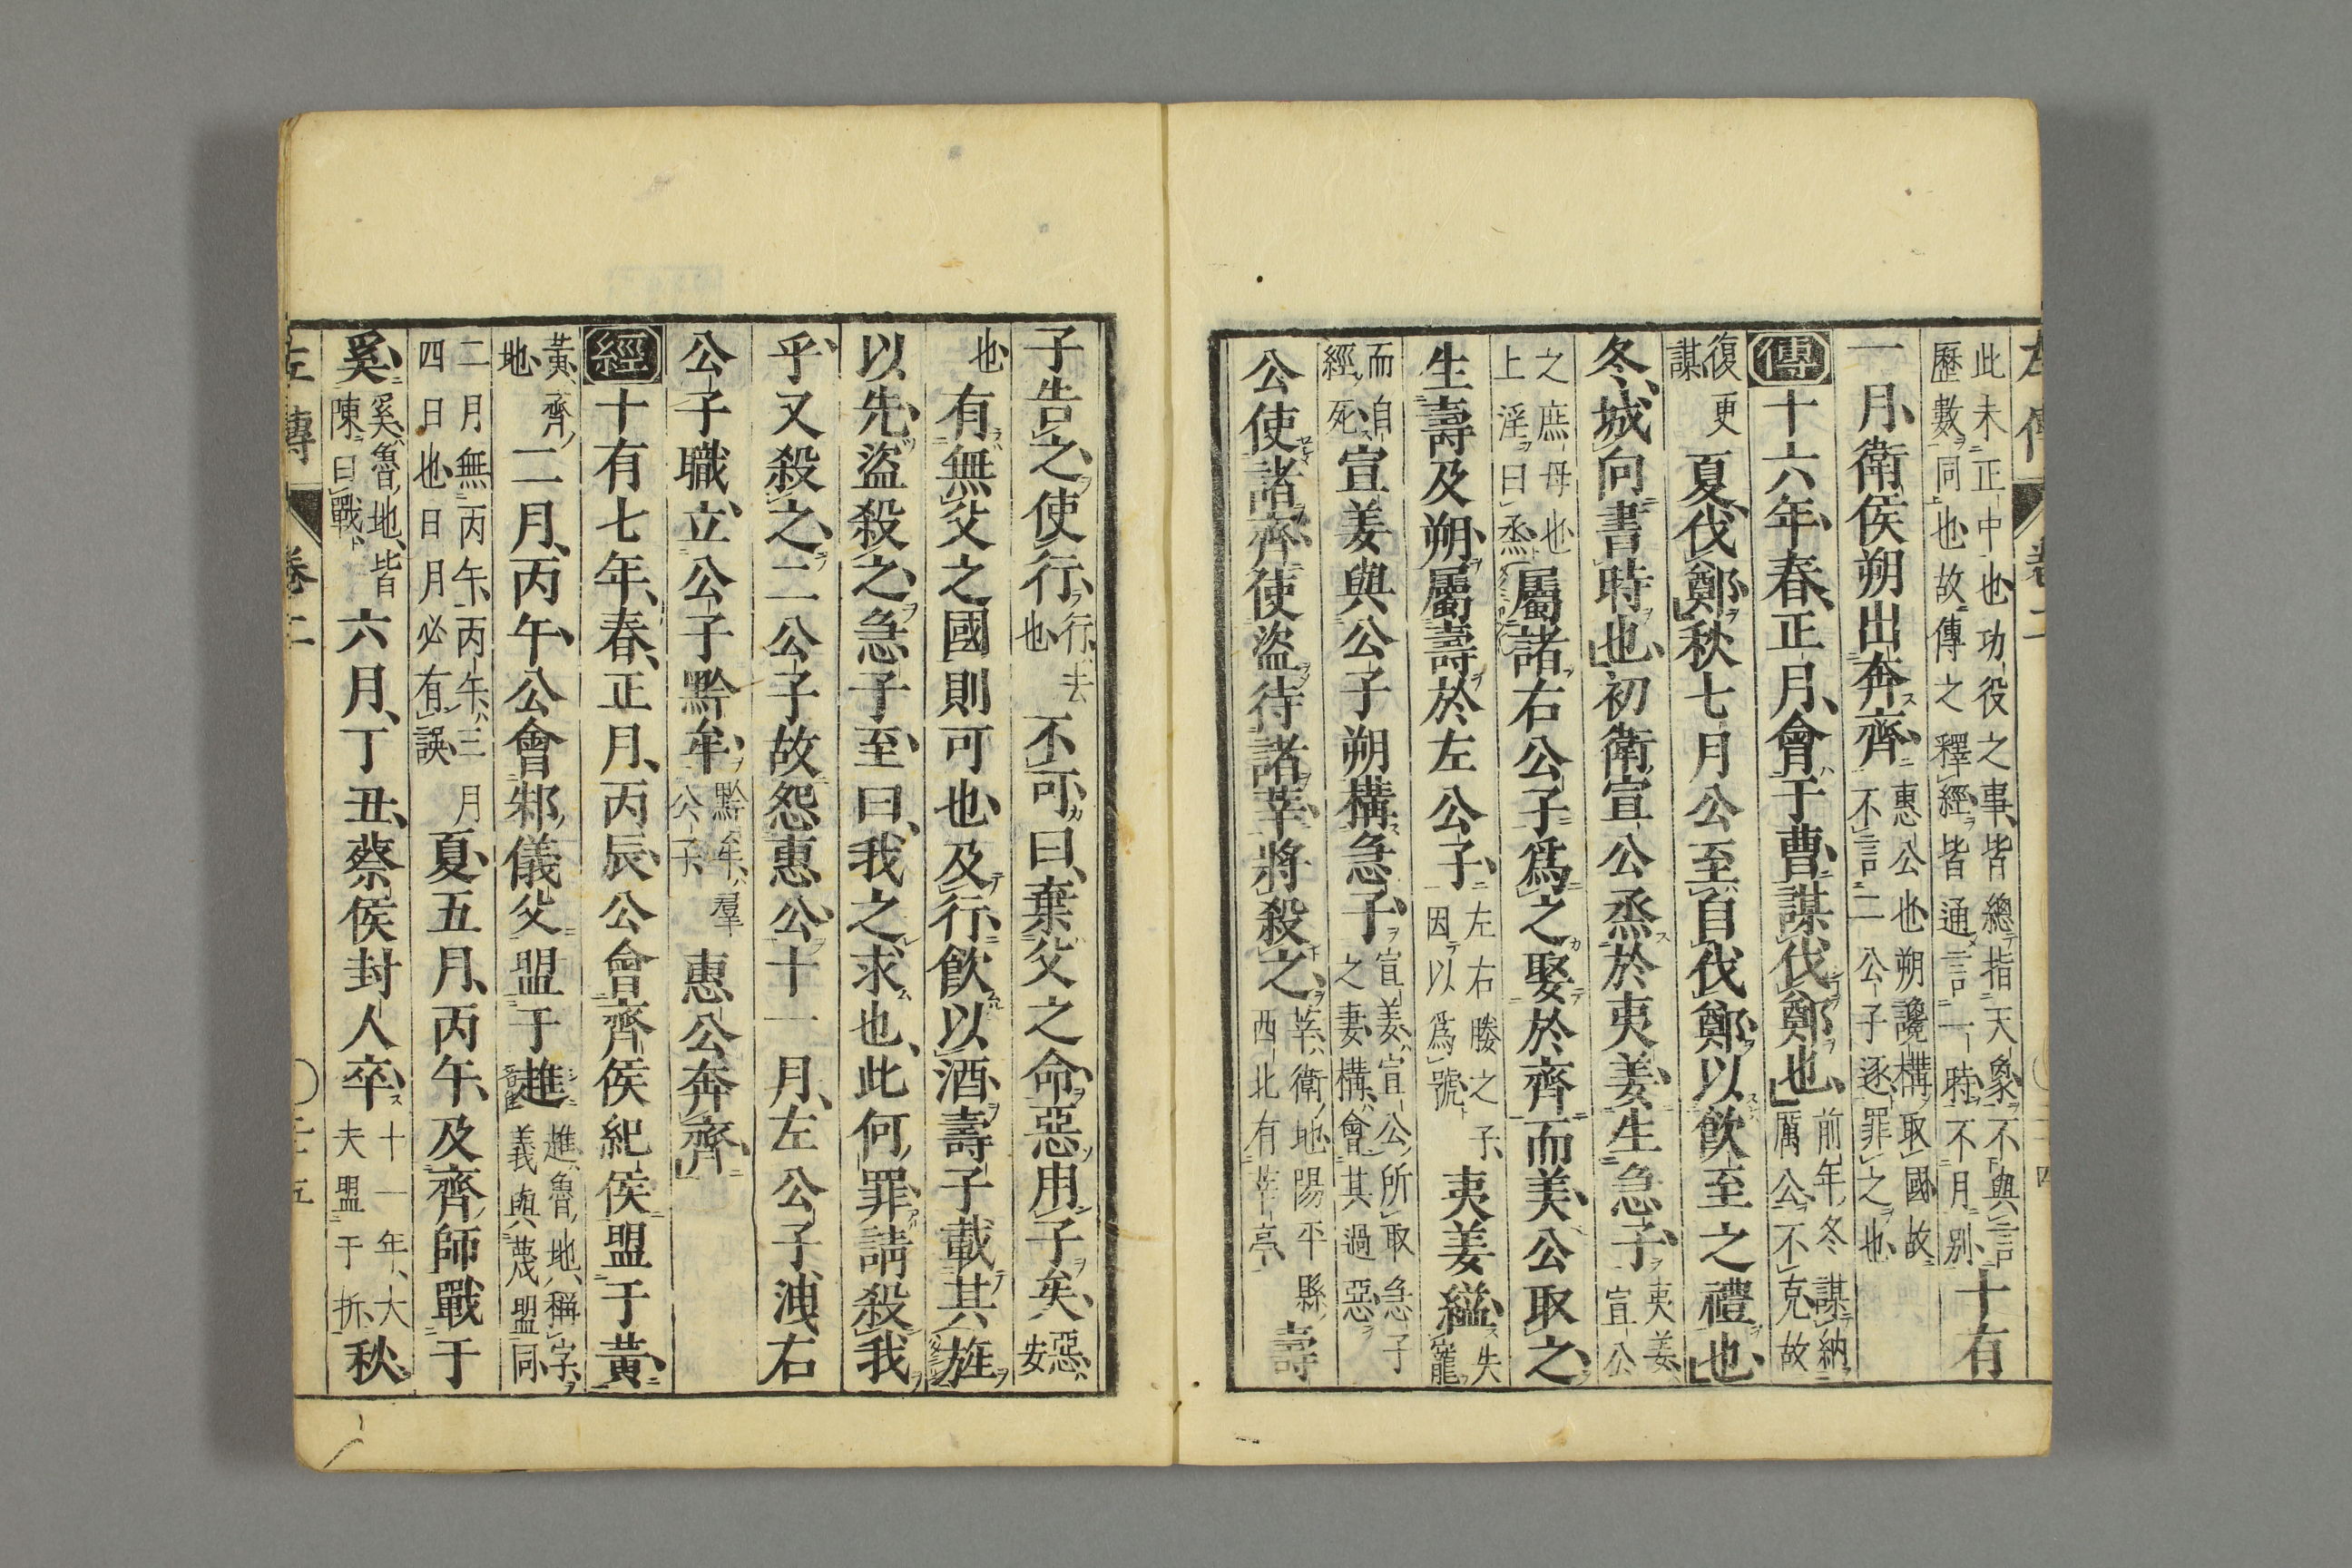 此未正中也功役之事皆總指天象不與言
歷數同也故傳之釋經皆通言一時不月別十有
一月衛侯朔出奔齊惠公也朔讒構取國故
不言二公子逐罪之也
傳十六年春正月會于曹謀伐鄭也前年冬謀納
厲公不克故
復更
謀夏伐鄭秋七月公至自伐鄭以飲至之禮也
冬城向書時也初衛宣公烝於夷姜生急子夷姜宣公
之庶母也
上淫曰烝屬諸右公子爲之娶於齊而美公取之
生壽及朔屬壽於左公子左右媵之子
因以爲號夷姜縊失寵
而自
經死宣姜與公子朔構急子宣姜宣公所取急子
之妻構會其過惡
公使諸齊使盜待諸莘將殺之莘衛地陽平縣
西北有莘亭壽
子告之使行行去
也不可曰棄父之命惡用子矣惡安
也有無父之國則可也及行飲以酒壽子載其旌
以先盜殺之急子至曰我之求也此何罪請殺我
乎又殺之二公子故怨惠公十一月左公子洩右
公子職立公子黔牟黔牟羣
公子惠公奔齊
經十有七年春正月丙辰公會齊侯紀侯盟于黃
黃齊
地二月丙午公會邾儀父盟于趡趡魯地稱字
義與蔑盟同
二月無丙午丙午三月
四日也日月必有誤夏五月丙午及齊師戰于
奚奚魯地皆
陳曰戰六月丁丑蔡侯封人卒十一年大
夫盟于折秋
左傳 卷二